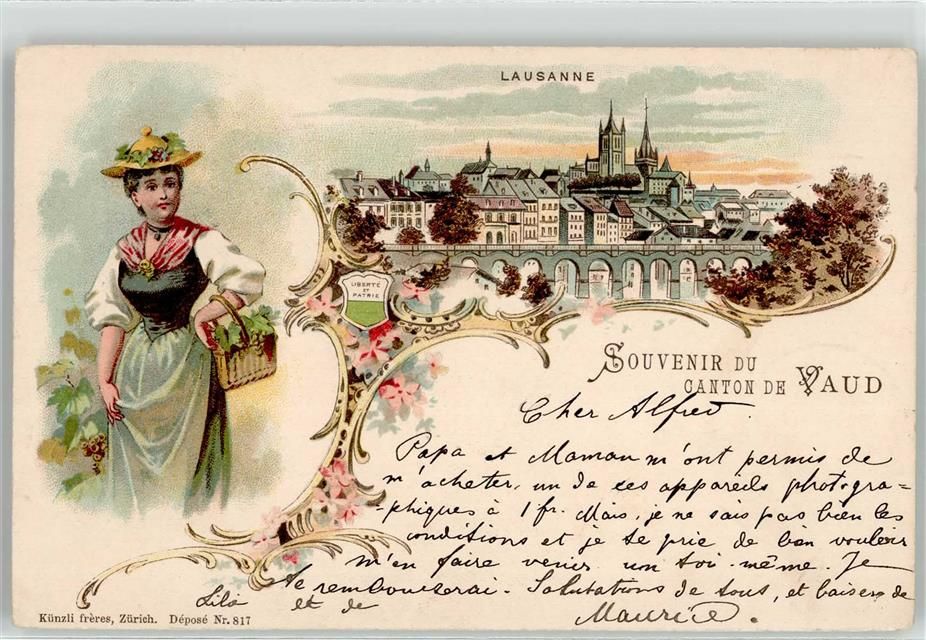 LAUSANNE
LIBERTÉ
ET
PATRIE
SOUVENIR DU
CANTON DE VAUD
Cher Alfred.
Papa et Maman m'ont permis de
m'acheter, un de ces appareils photogra-
-phiques à 1 fr. Mais, je ne sais pas bien les
conditions et je te prie de bien vouloir
m'en faire venir un toi-même. Je
te rembourserai. Salutations de tous, et baisers de
Lilo et de Maurice.
Künzli frères, Zürich. Déposé Nr. 817